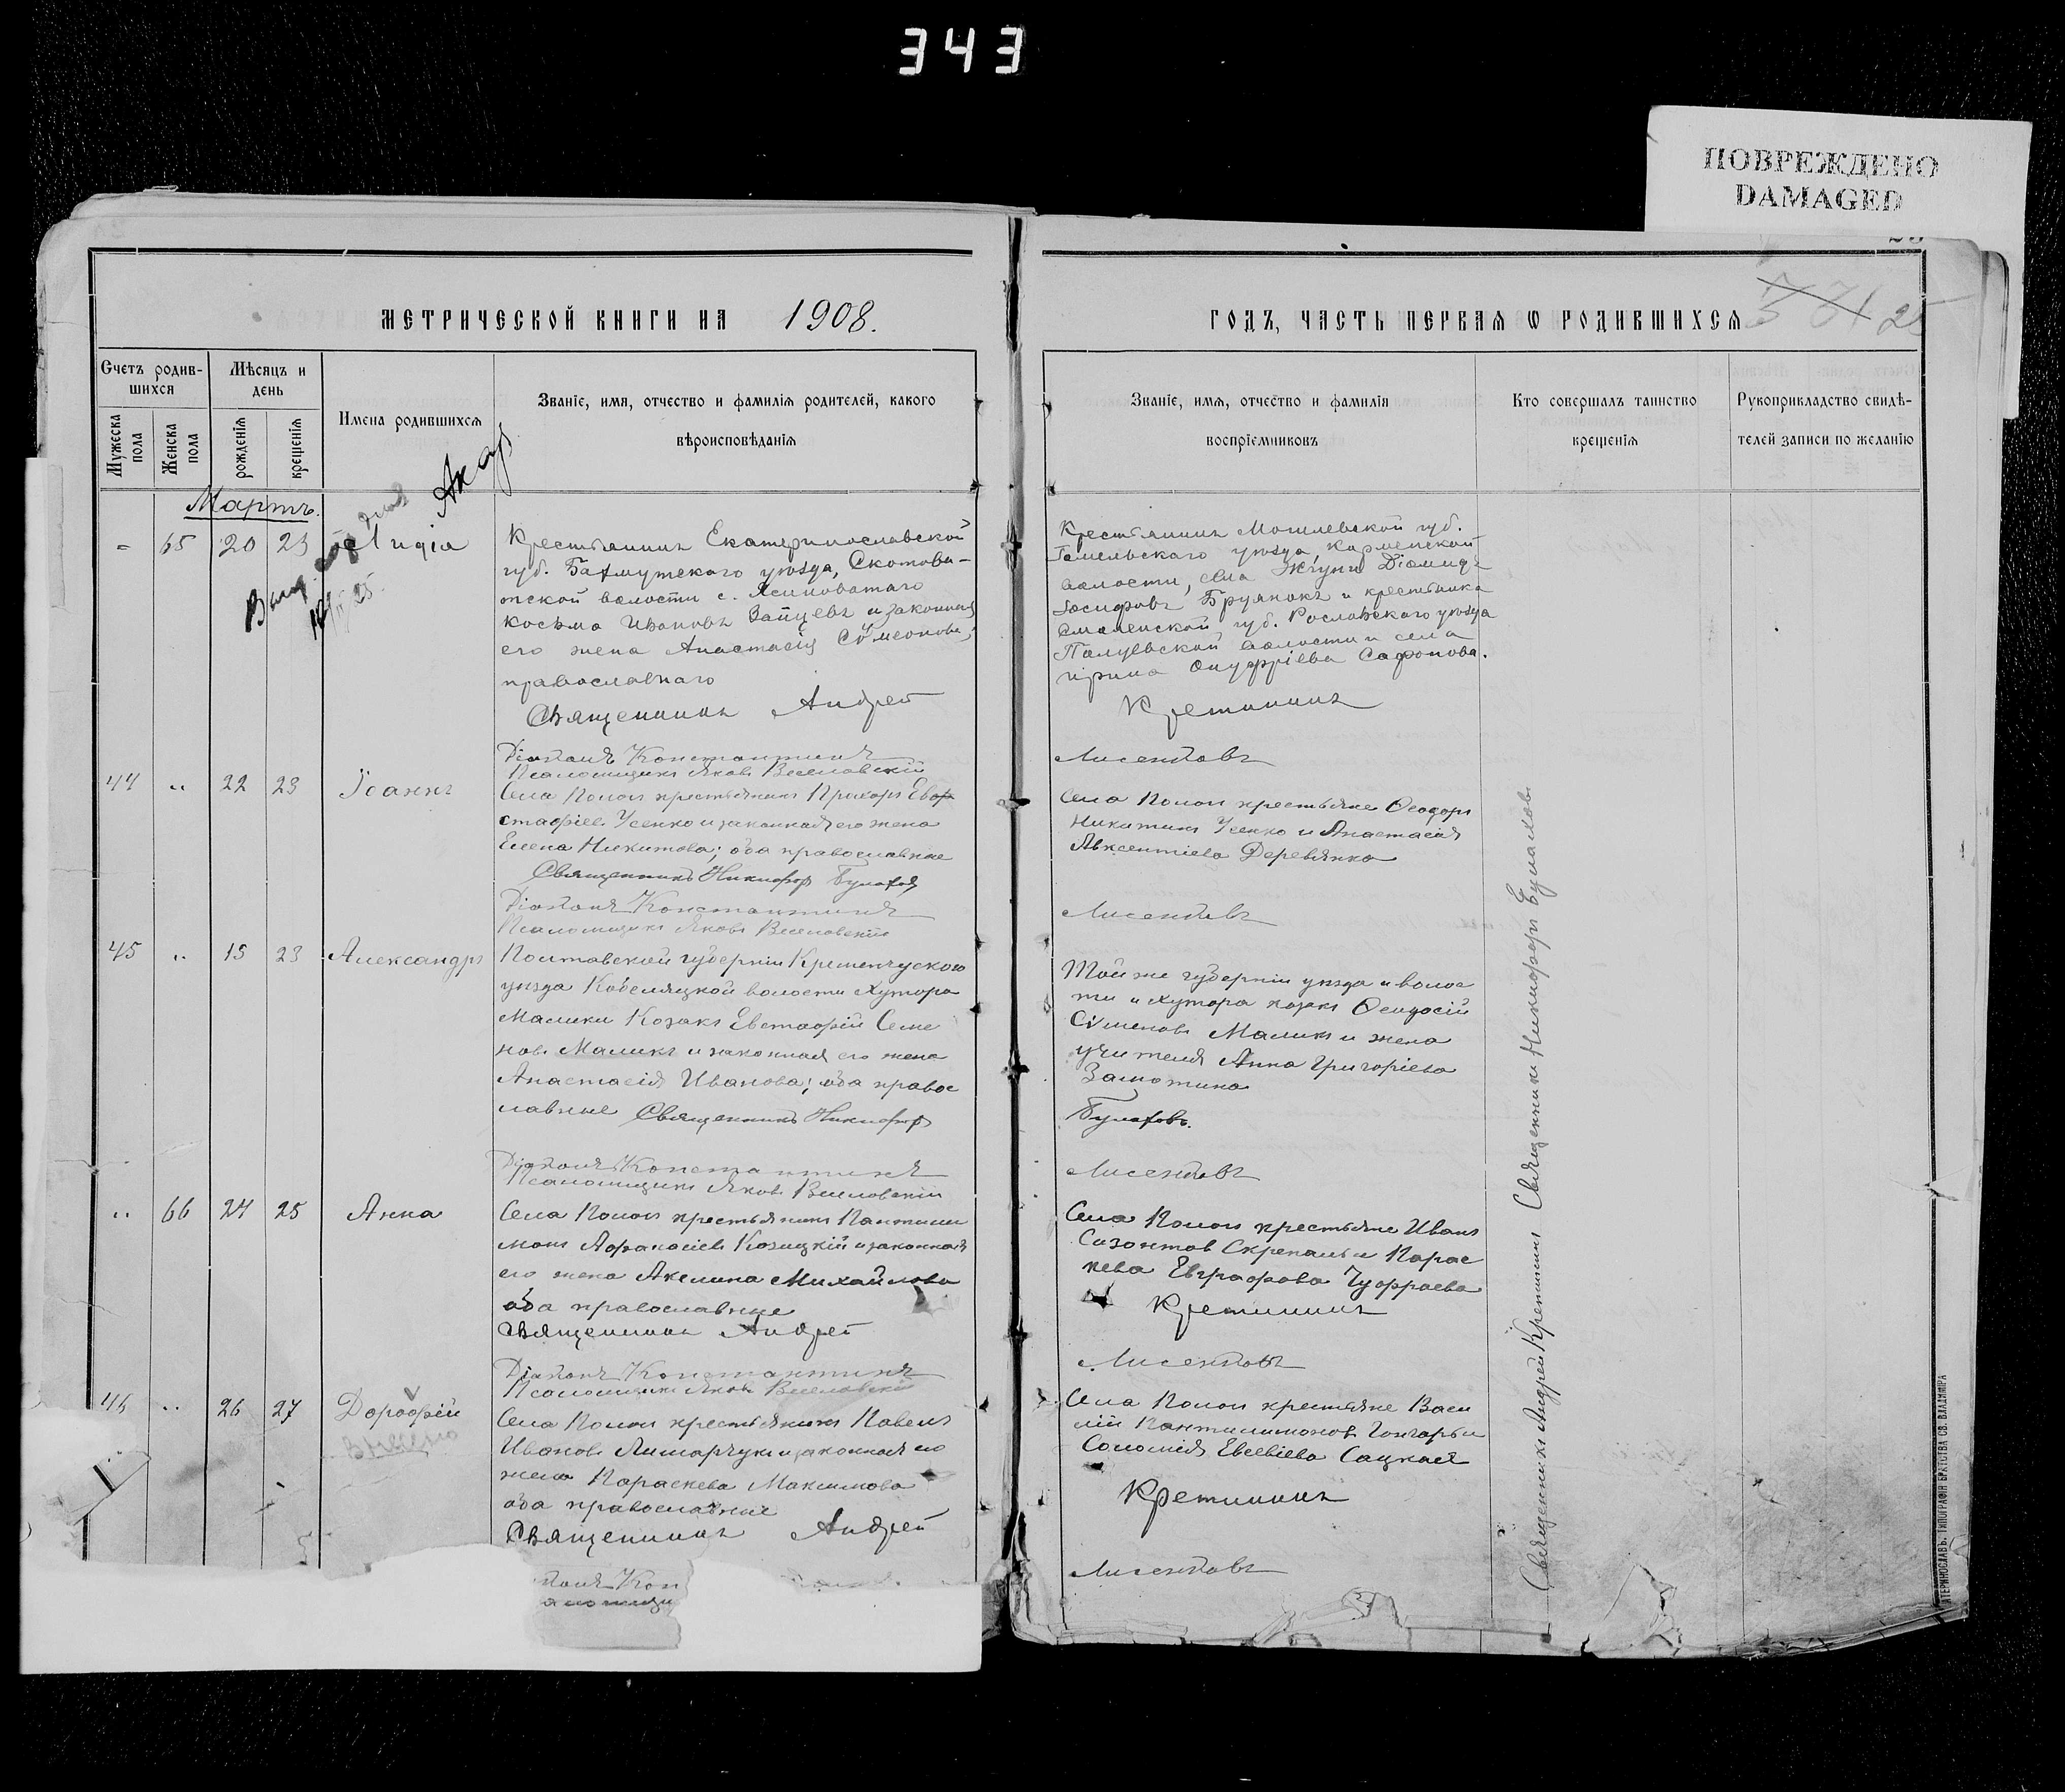 343
ПОВРЕЖДЕНО
DAMAGED
МЕТРИЧЕСКОЙ КНИГИ НА 1908.
Счетъ родив-
шихся
Мѣсяцъ и
день
Имена родившихся
Званіе, имя, отчество и фамилія родителей, какого
вѣроисповѣданія
Мужеска
пола
Женска
пола
рожденія
крещенія
Мартъ.
65 20 23 Лидія
Крестьянинъ Екатеринославской
губ. Бахмутскаго уѣзда, Скотова-
тской волости с. Ясиноватаго
Косьма Ивановъ Зайцевъ и законная
его жена Анастасія Сѵмеонова,
православнаго
Священникъ Андрей
Діаконъ Константинъ
Псаломщикъ Яковъ Веселовскій
44 " 22 23 Іоаннъ
Села Попон крестьянинъ Прохоръ Евор
стафіев. Усенко и законная его жена
Елена Никитова; оба православные
Священникъ Никифоръ Булаховъ
Діаконъ Константинъ
Псаломщикъ Яковъ Веселовскій
45 " 15 23 Александръ
Полтавской губерніи Кременчугского
уѣзда Кобеляцкой волости Хутора
Малики Козакъ Евстафій Семе
новъ Маликъ и законная его жена
Анастасія Иванова; оба правос
лавные Священникъ Никифоръ
Діаконъ Константинъ
Псаломщикъ Яковъ Веселовскій
" 66 24 25 Анна
Села крестьянинъ Пантили
монъ Афанасіевъ Козицкій и законная
его жена Акелина Михайлова
оба православные
Священникъ Андрей
Діаконъ Константинъ
Псаломщикъ Яковъ Веселовскій
46 " 26 27 Дорофей
Села крестьянинъ Павелъ
Ивановъ Лимарчукъ и законная его
жена Параскева Максимова
оба православные
Священникъ Андрей
ГОДЪ, ЧАСТЬ ПЕРВАЯ Ѡ РОДИВШИХСЯ
25
Званіе, имя, отчество и фамилія
воспріемниковъ
Кто совершалъ таинство
крещенія
Рукоприкладство свидѣ-
телей записи по желанію
Крестьянинъ Могилевской губ.
Гомельскаго уѣзда, Кормянской
волости, села Жгуни Діомидъ
Іосифовъ Бруянокъ и крестьянка
Смоленской губ. Рославскаго уѣзда
волости и села
Ирина Онуфріева Сафонова.
Кретининъ
Лисенковъ
Села крестьяне Ѳеодоръ
Никитинъ Усенко и Анастасія
Авксентіева Деревянко
Лисенковъ
Той же губерніи уѣзда и волос
ти и хутора козакъ Ѳеодосій
Сѵменовъ Маликъ и жена
учителя Анна Григоріева
Замотина
Булаховъ.
Лисенковъ
Села крестьяне Иванъ
Созонтов Скрепаль и Парас
кева Евграфова
Кретининъ
Лисенковъ
Села крестьяне Васи
лій Пантилимоновъ Гончаръ и
Соломія Евсевіева Сацкая
Кретининъ
Лисенковъ
Священникъ Андрей Кретининъ Священникъ Никифоръ Булаховъ
АТЕРИНОСЛАВЪ. ТИПОГРАФІЯ БРАТСТВА СВ. ВЛАДИМІРА